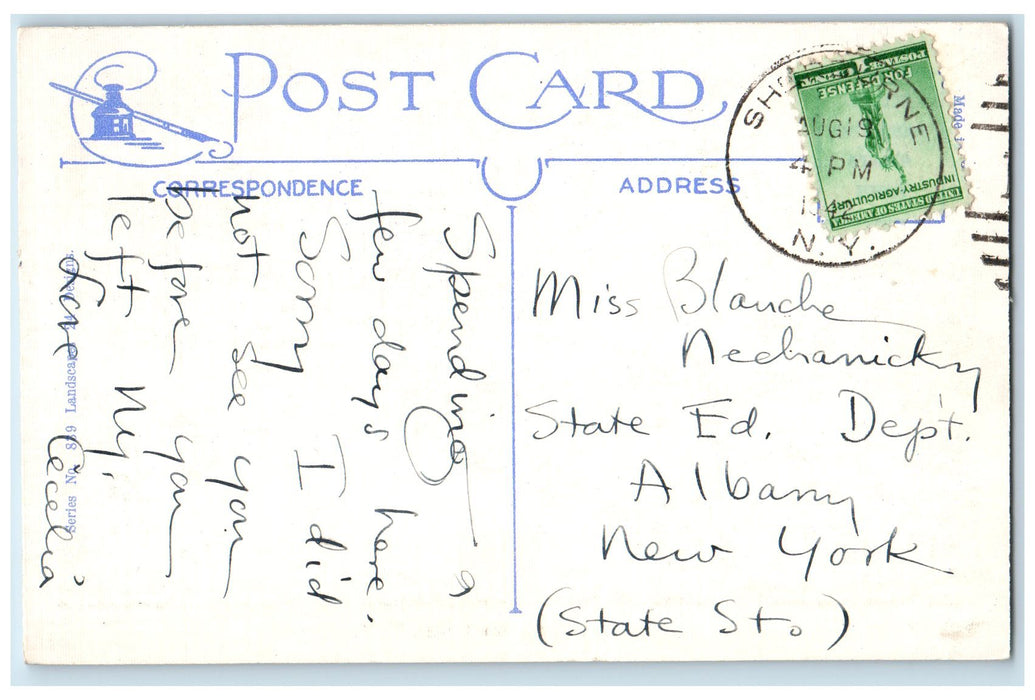 POST CARD
CORRESPONDENCE
ADDRESS
Spending a
few days here.
Sorry I did
not see you
before you
left N.Y.
Love Cecelia
Miss Blanche
Nechanicky
State Ed. Dept.
Albany
New York
(State St.)
SHE RNE
AUG 19
4 PM
N.Y.
UNITED STATES OF AMERICA
INDUSTRY-AGRICULTURE
FOR DEFENSE
POSTAGE
Made
Series No. 869 Landscapes 24 Designs.